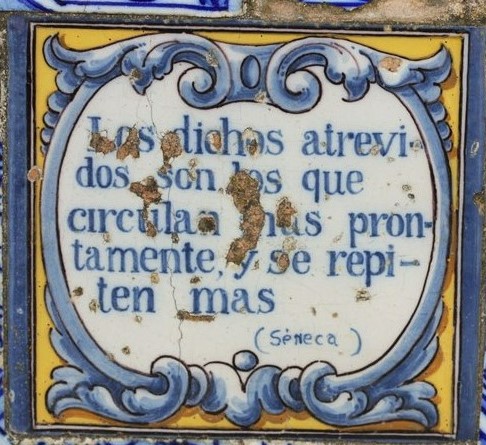 Los dichos atrevi-
dos son los que
circulan mas pron-
tamente, y se repi-
ten mas
(Sèneca)